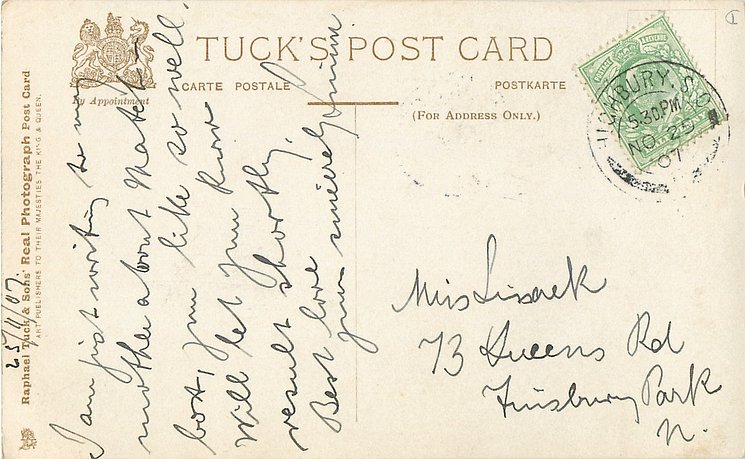 TUCK'S POST CARD
CARTE POSTALE
POSTKARTE
By Appointment
(FOR ADDRESS ONLY.)
Raphael Tuck & Sons' Real Photograph Post Card
ART PUBLISHERS TO THEIR MAJESTIES THE KING & QUEEN.
POSTAGE & REVENUE
HIGHBURY. S.O
5.30PM
NO 25
07
25/11/07.
I am just writing to my
mother about
boxt, you like so well.
Will let you know
result shortly,
Best love
yours sincerely
Miss Lissack
73 Queens Rd
Finsbury Park
N.